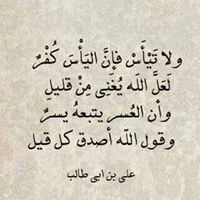 ولا تَيْأَسْ فإنَّ اليَأْسَ كُفْرٌ
لَعَلَّ اللَه يُغَنِى مِنْ قليلِ
وأن العُسر يتبعهُ يسرٌ
وقول اللّه أصدق كل قيل
على بن ابى طالب